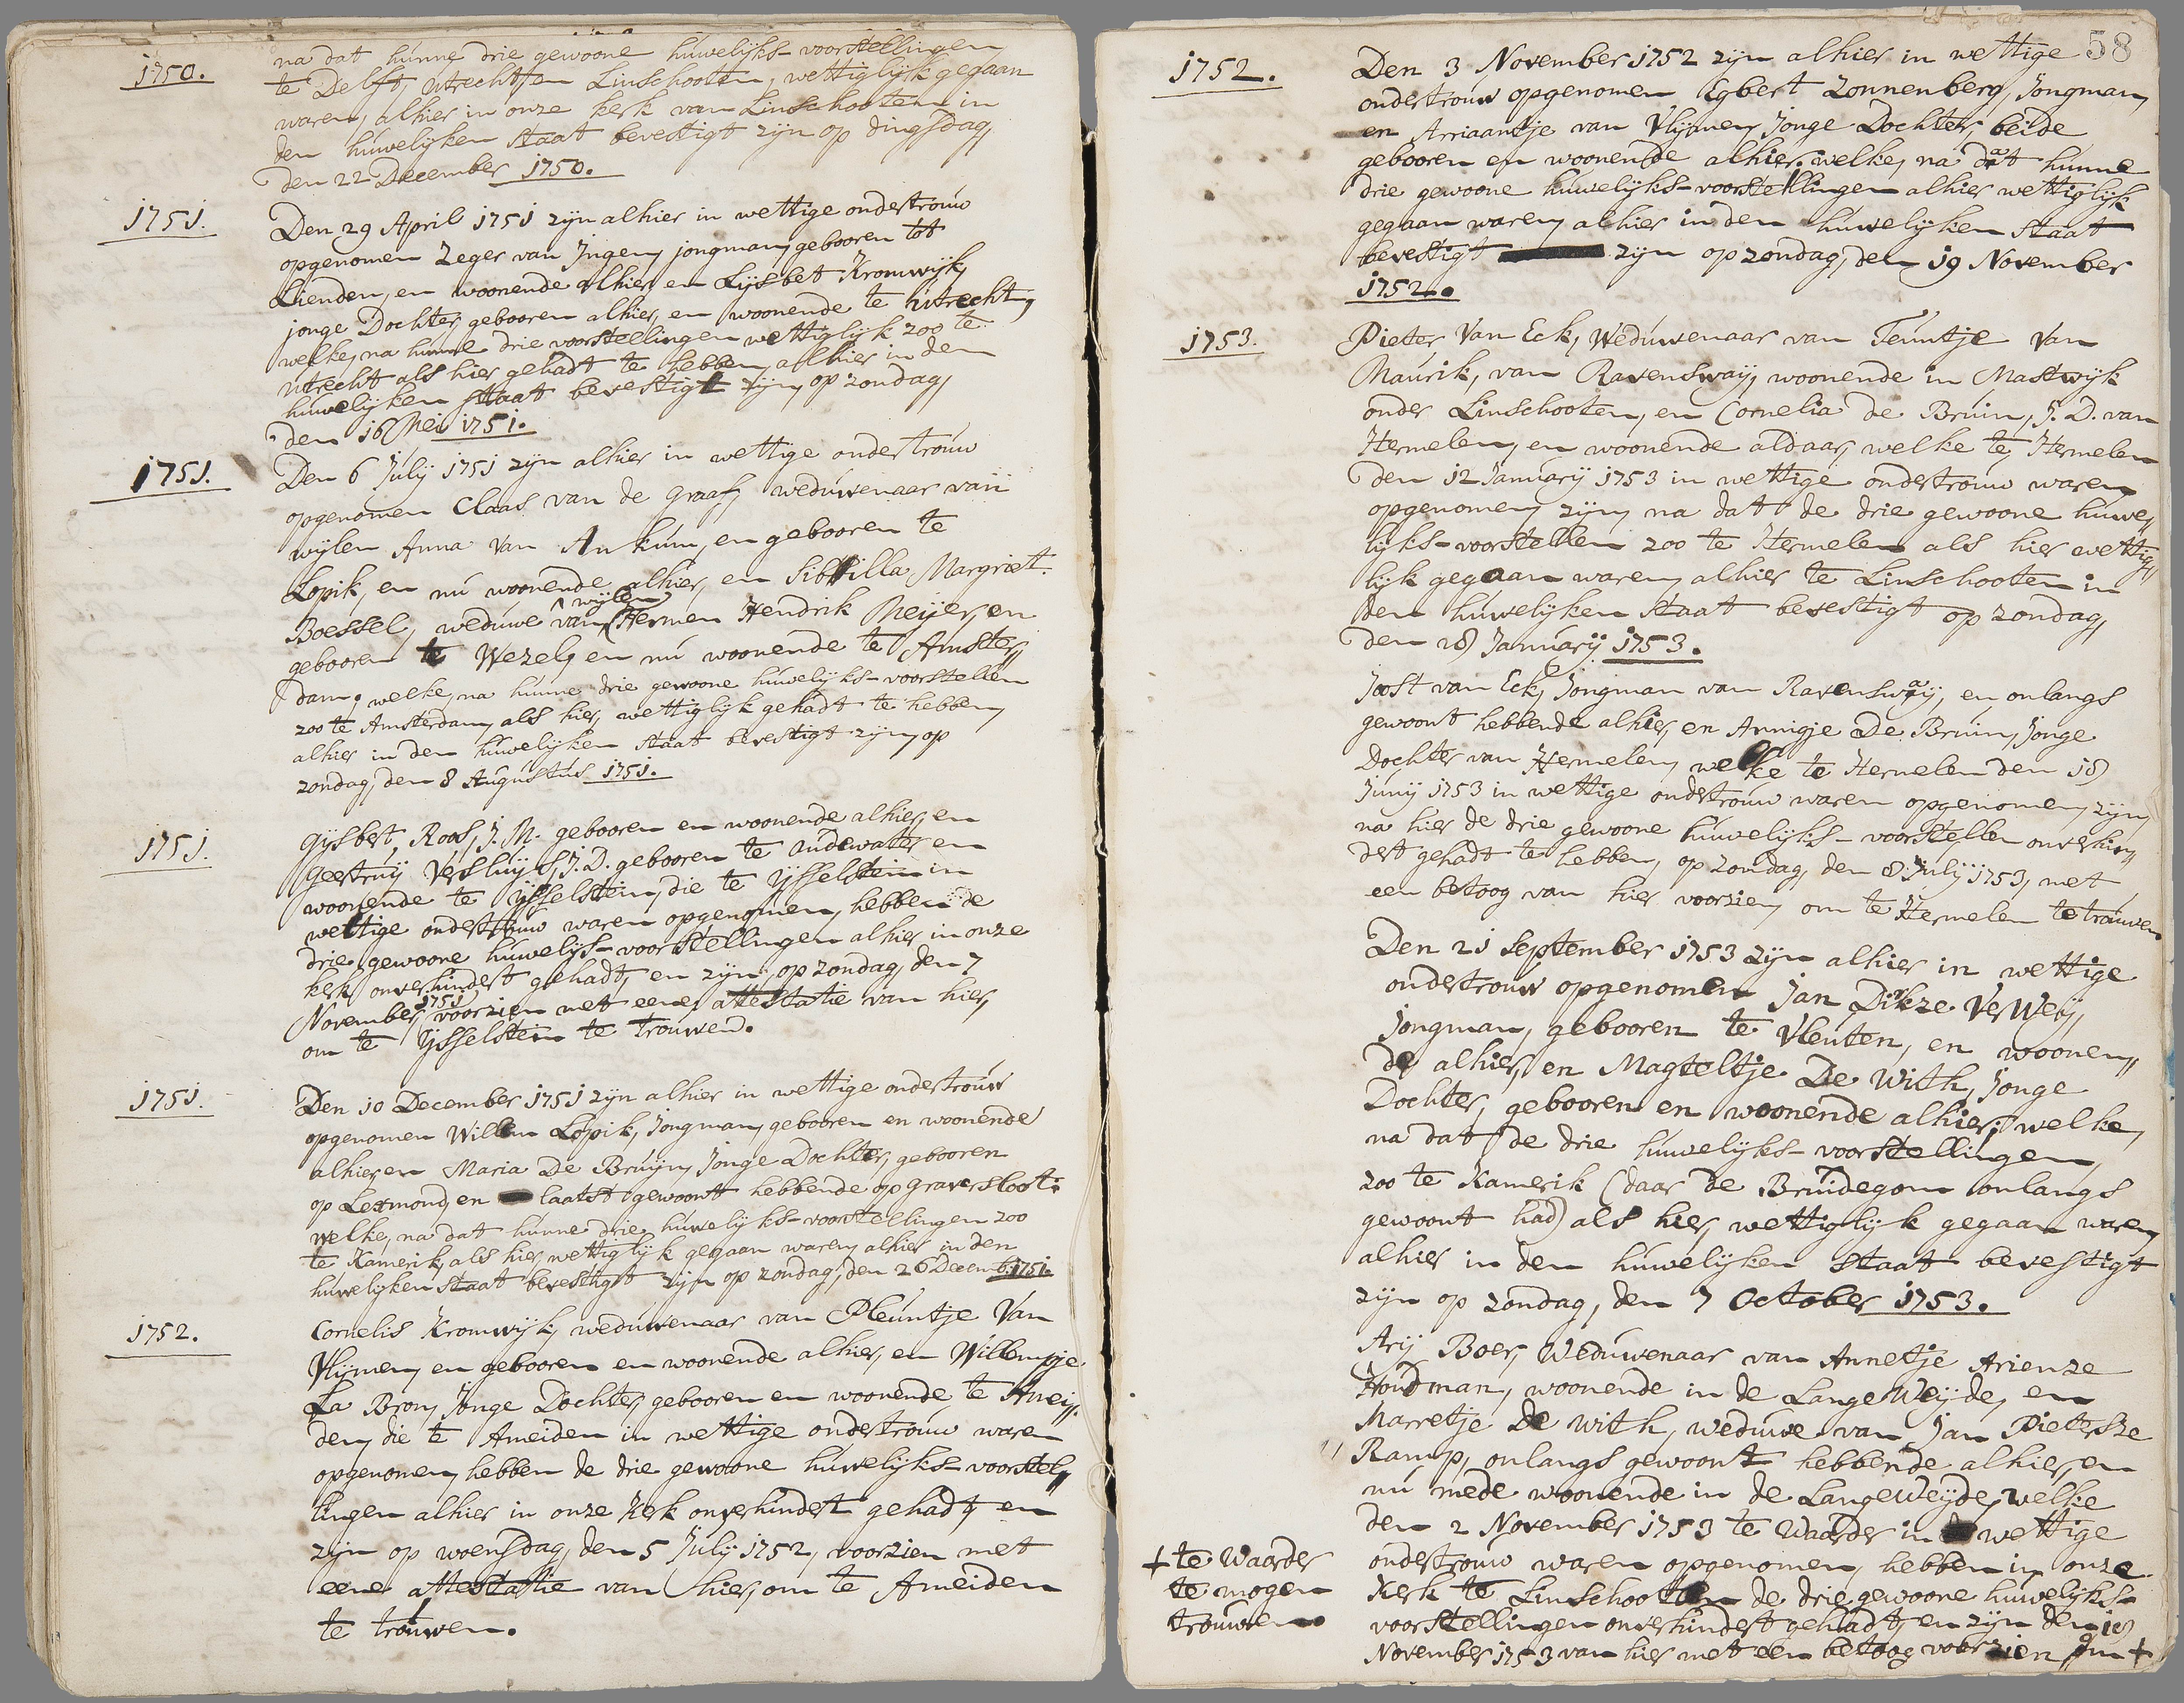 1750.
na dat hunne drie gewoone huwelijks-voorstellingen
te Delft, Utrecht, en Linschooten, wettiglijk gegaan
waren, alhier in onze kerk van Linschooten in
den huwelijken staat bevestigt zijn op dingsdag,
den 22 December 1750.
1751.
Den 29 April 1751 zijn alhier in wettige ondertrouw
opgenomen Zeger van Ingen, jongman, gebooren tot
Lienden, en woonende alhier, en Lijsbet Kromwijk,
jonge Dochter, gebooren alhier, en woonende te Utrecht,
welke, na hunne drie voorstellingen wettiglijk zoo te
Utrecht als hier gehadt te hebben, alhier in den
huwelijken staat bevestigt zijn, op zondag,
den 16 Mei 1751.
1751.
Den 6 Julij 1751 zijn alhier in wettige ondertrouw
opgenomen Claas van de Graaf, weduwenaar van
wijlen Anna van Ankum, en gebooren te
Lopik, en nu woonende alhier, en Sibilla Margriet
Boessel, weduwe van wijlen Hermen Hendrik Meijer, en
gebooren te Wezel, en nu woonende te Amster„
dam, welke, na hunne drie gewoone huwelijks-voorstellen
zoo te Amsterdam, als hier, wettiglijk gehadt te hebben,
alhier in den huwelijken staat bevestigt zijn, op
zondag, den 8 Augustus 1751.
1751.
Gijsbert Roos, J. M. gebooren en woonende alhier, en
Geertruij Versluijs, J. D. gebooren te Oudewater en
woonende te Ijsselstein, die te Ijsselstein in
wettige ondertrouw waren opgenomen, hebben de
drie gewoone huwelijs-voorstellingen alhier in onze
kerk onverhindert gehadt, en zijn, op zondag, den 7
November 1751, voorzien met eene attestatie van hier,
om te Ijsselstein te trouwen.
1751.
Den 10 December 1751 zijn alhier in wettige ondertrouw
opgenomen Willem Lopik, jongman, gebooren en woonende
alhier, en Maria De Bruijn, Jonge Dochter, gebooren
op Lexmond, en laatst gewoont hebbende op Graversloot:
welke, na dat hunne drie huwelijks-voorstellingen zoo
te Kamerik, als hier wettiglijk gegaan waren, alhier in den
huwelijken staat bevestigt zijn op zondag, den 26 Decemb. 1751.
1752.
Cornelis Kromwijk, weduwenaar van Pleuntje Van
Vlijmen, en gebooren en woonende alhier, en Willempje
La Bron, Jonge Dochter, gebooren en woonende te Amei„
den, die te Ameiden in wettige ondertrouw waren
opgenomen, hebben de drie gewoone huwelijks-voorstel„
lingen alhier in onze kerk onverhindert gehadt, en
zijn op woensdag, den 5 Julij 1752, voorzien met
eene attestatie van hier, om te Ameiden
te trouwen.
58
1752.
Den 3 November 1752 zijn alhier in wettige
ondertrouw opgenomen Egbert Zonnenberg, Jongman,
en Arriaantje van Vlijmen, Jonge Dochter, beide
gebooren en woonende alhier, welke, na dat hunne
drie gewoone huwelijks-voorstellingen alhier wettiglijk
gegaan waren, alhier in den huwelijken staat
bevestigt zijn op zondag, den 19 November
1752.
1753.
Pieter Van Eck, Weduwenaar van Teuntje Van
Maurik, van Ravenswaij, woonende in Mastwijk
onder Linschooten, en Cornelia de Bruin, J. D. van
Hermelen, en woonende aldaar, welke te Hermelen
den 12 Januarij 1753 in wettige ondertrouw waren
opgenomen, zijn, na dat de drie gewoone huwe„
lijks-voorstellen zoo te Hermelen als hier wettig„
lijk gegaan waren, alhier te Linschooten in
den huwelijken staat bevestigt op zondag,
den 28 Januarij 1753.
Joost van Eck, Jongman van Ravenswaij, en onlangs
gewoont hebbende alhier, en Annigje De Bruin, Jonge
Dochter van Hermelen, welke te Hermelen den 18
Junij 1753 in wettige ondertrouw waren opgenomen, zijn
na hier de drie gewoone huwelijks-voorstellen onverhin„
dert gehadt te hebben, op zondag, den 8 Julij 1753, met
een betoog van hier voorzien, om te Hermelen te trouwen.
Den 21 September 1753 zijn alhier in wettige
ondertrouw opgenomen Jan Dirkze VerWeij,
jongman, gebooren te Vleuten, en woonen„
de alhier, en Magteltje De With, Jonge
Dochter, gebooren en woonende alhier; welke,
na dat de drie huwelijks-voorstellingen,
zoo te Kamerik (daar de Bruidegom onlangs
gewoont had) als hier, wettiglijk gegaan waren,
alhier in den huwelijken staat bevestigt
zijn op zondag, den 7 October 1753.
Arij Boer, Weduwenaar van Annetje Arienze
Houdman, woonende in de Lange Weijde, en
Marretje De With, weduwe van Jan Pietersze
Ramp, onlangs gewoont hebbende alhier, en
nu mede woonende in de Lange Weijde, welke
den 2 November 1753 te Waarder in wettige
ondertrouw waren opgenomen, hebben in onze
kerk te Linschooten de drie gewoone huwelijks-
voorstellingen onverhindert gehadt, en zijn den 18
November 1753 van hier met een betoog voorzien om +
+ te Waarder
te mogen
trouwen.